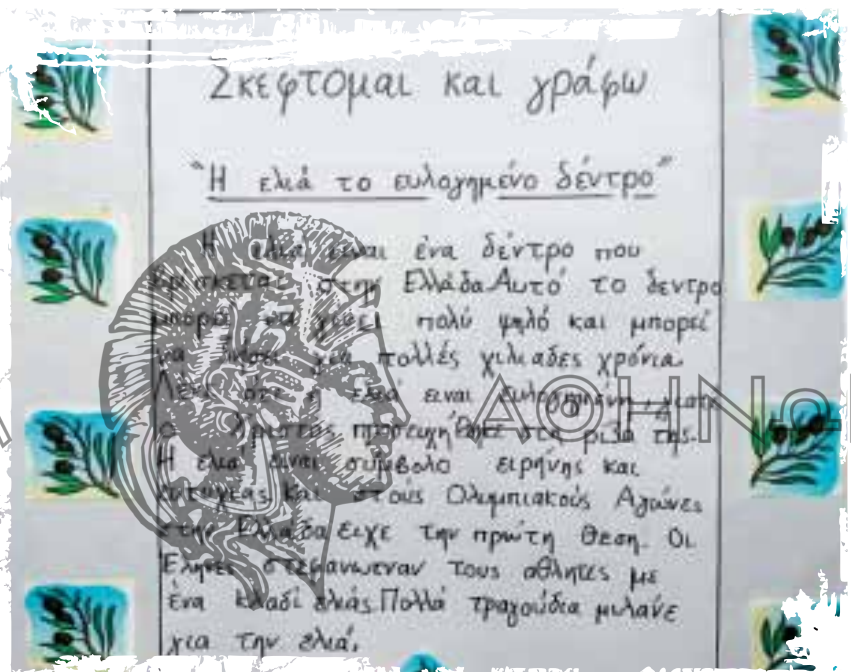 Σκεφτομαι και γράφω
"Η ελιά το ευλογημένο δέντρο"
Η ελιά ειναι ένα δέντρο που
βρισκεται στην Ελλάδα. Αυτό το δεντρο
μπορεί να γινει πολύ ψηλό και μπορεί
να ζήσει για πολλές χιλιαδες χρόνια.
Λένε ότι η ελιά ειναι ευλογημένη γιατί
ο Χριστός προσευχήθηκε στη ρίζα της.
Η ελιά ειναι σύμβολο ειρήνης και
ευτυχίας. Και στους Ολυμπιακούς Αγώνες
στην Ελλάδα ειχε την πρώτη θεση. Οι
Έληνες στεφανωναν τους αθλητες με
ένα κλαδί ελιάς. Πολλά τραγούδια μιλάνε
για την ελιά.